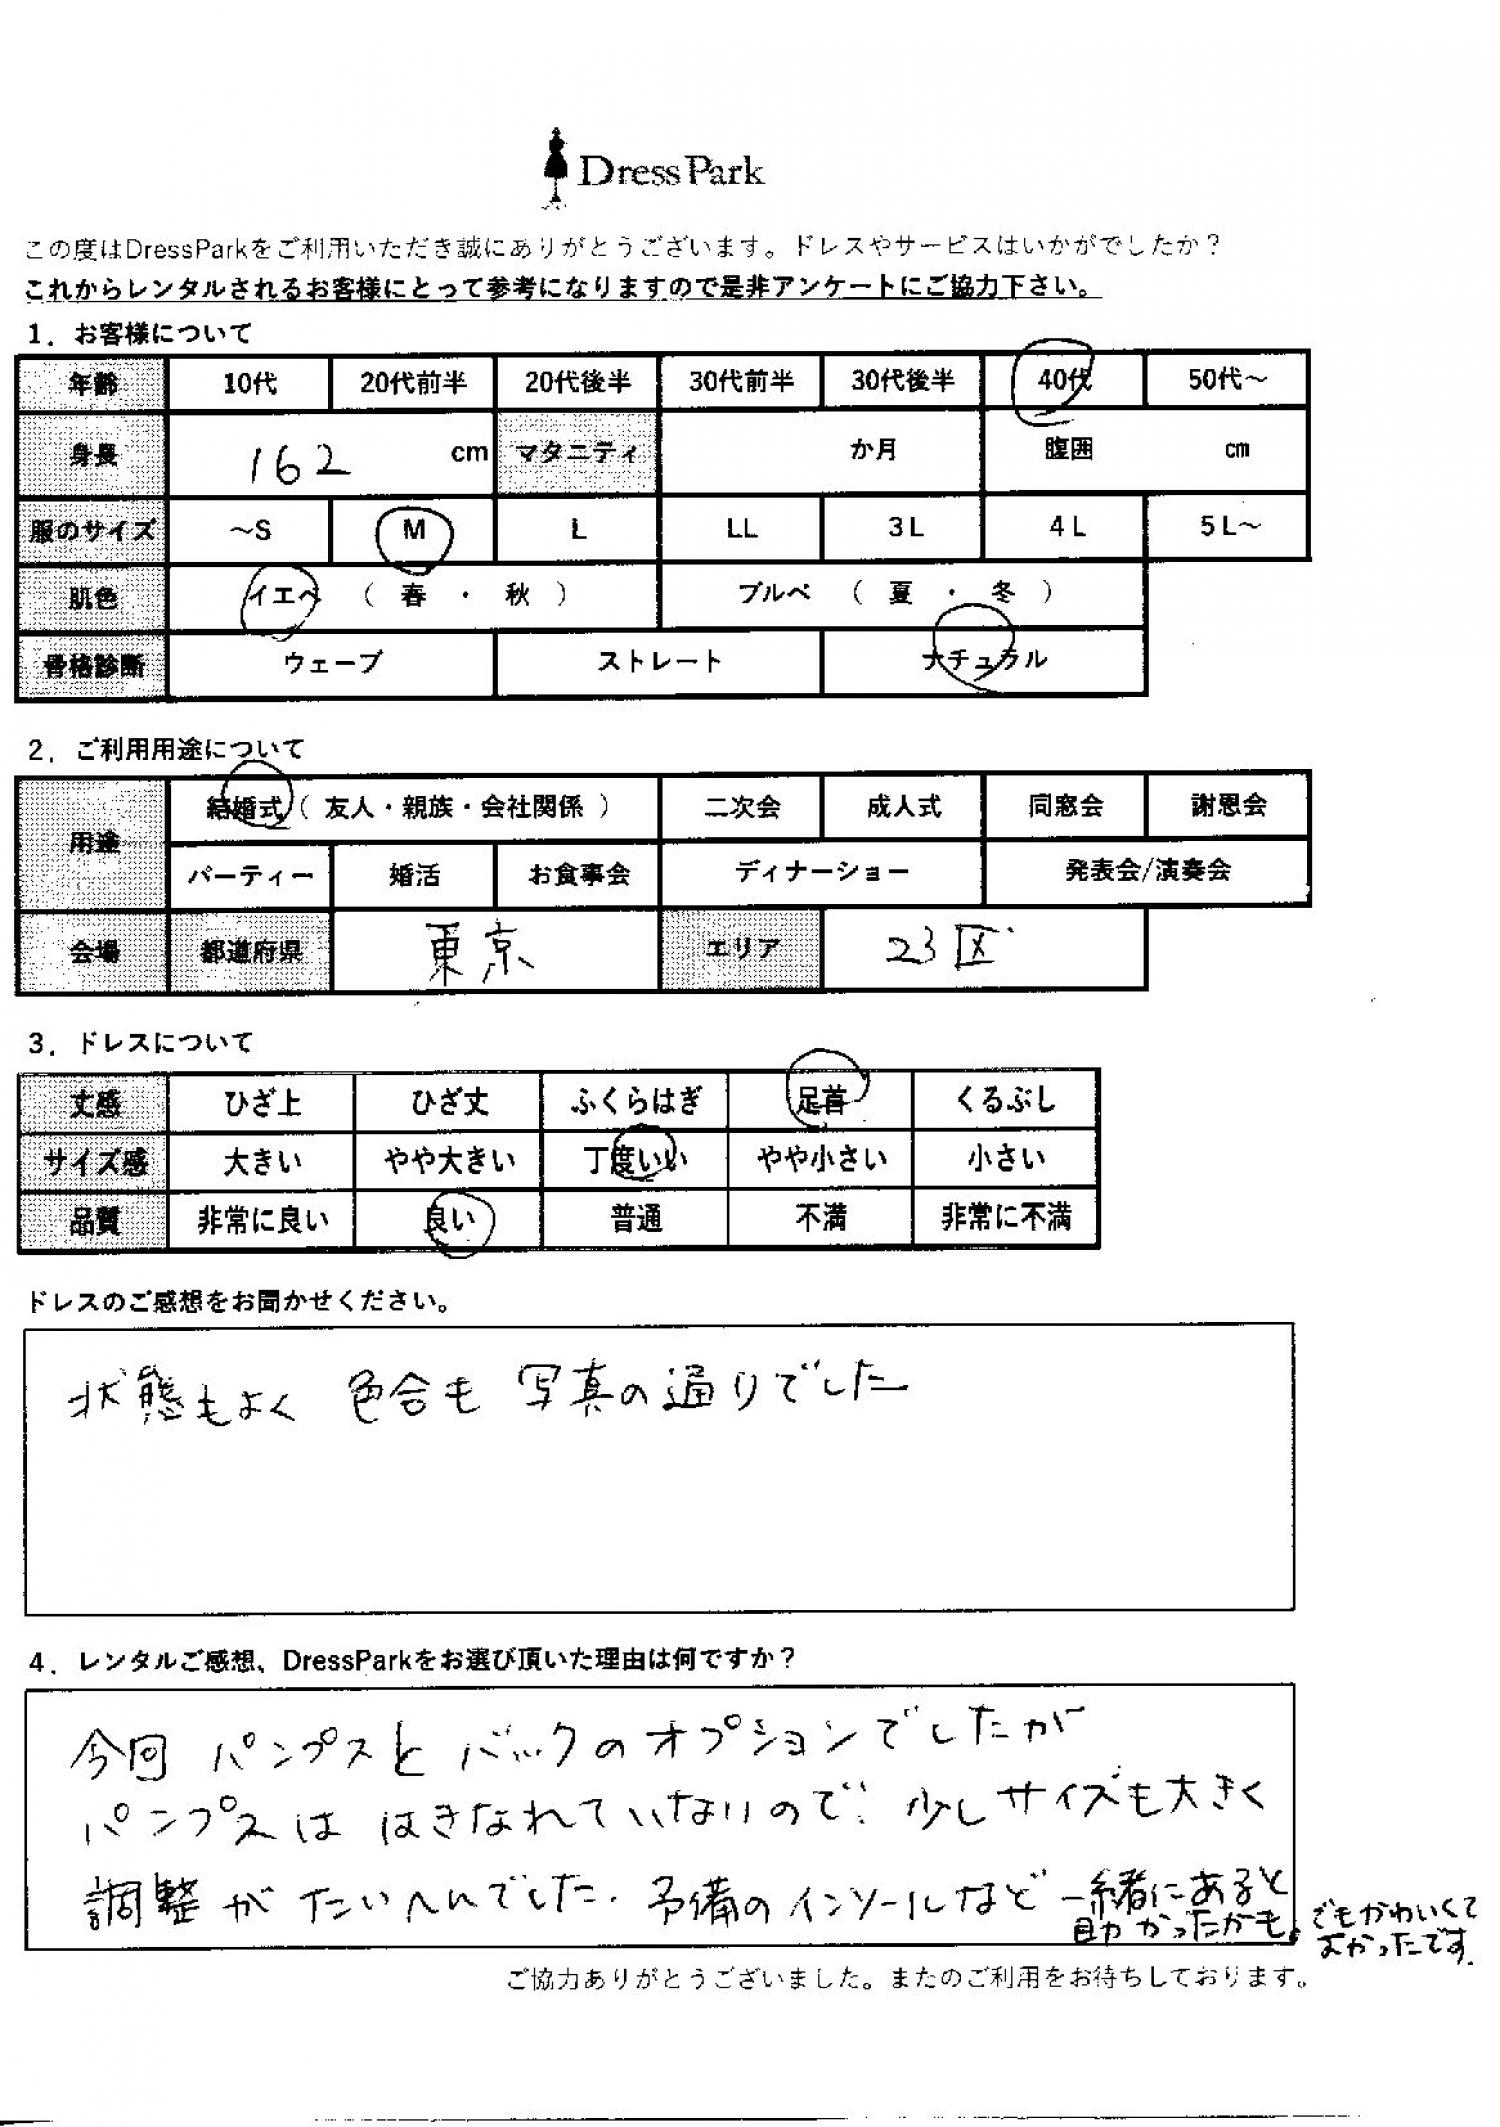 Dress Park
この度はDressParkをご利用いただき誠にありがとうございます。ドレスやサービスはいかがでしたか？
これからレンタルされるお客様にとって参考になりますので是非アンケートにご協力下さい。
1．お客様について
年齢 10代 20代前半 20代後半 30代前半 30代後半 40代 50代～
身長 162 cm マタニティ か月 腹囲 cm
服のサイズ ～S M L LL 3L 4L 5L～
肌色 イエベ （ 春 ・ 秋 ） ブルベ （ 夏 ・ 冬 ）
骨格診断 ウェーブ ストレート ナチュラル
2．ご利用用途について
用途 結婚式（ 友人・親族・会社関係 ） 二次会 成人式 同窓会 謝恩会
パーティー 婚活 お食事会 ディナーショー 発表会/演奏会
会場 都道府県 東京 エリア 23区
3．ドレスについて
丈感 ひざ上 ひざ丈 ふくらはぎ 足首 くるぶし
サイズ感 大きい やや大きい 丁度いい やや小さい 小さい
品質 非常に良い 良い 普通 不満 非常に不満
ドレスのご感想をお聞かせください。
状態もよく 色合も 写真の通りでした
4．レンタルご感想、DressParkをお選び頂いた理由は何ですか？
今回 パンプスと バックのオプションでしたが
パンプスは はきなれていないので、少しサイズも大きく
調整が たいへんでした. 予備のインソールなど 一緒にあると
助かったかも。でもかわいくて
よかったです.
ご協力ありがとうございました。またのご利用をお待ちしております。